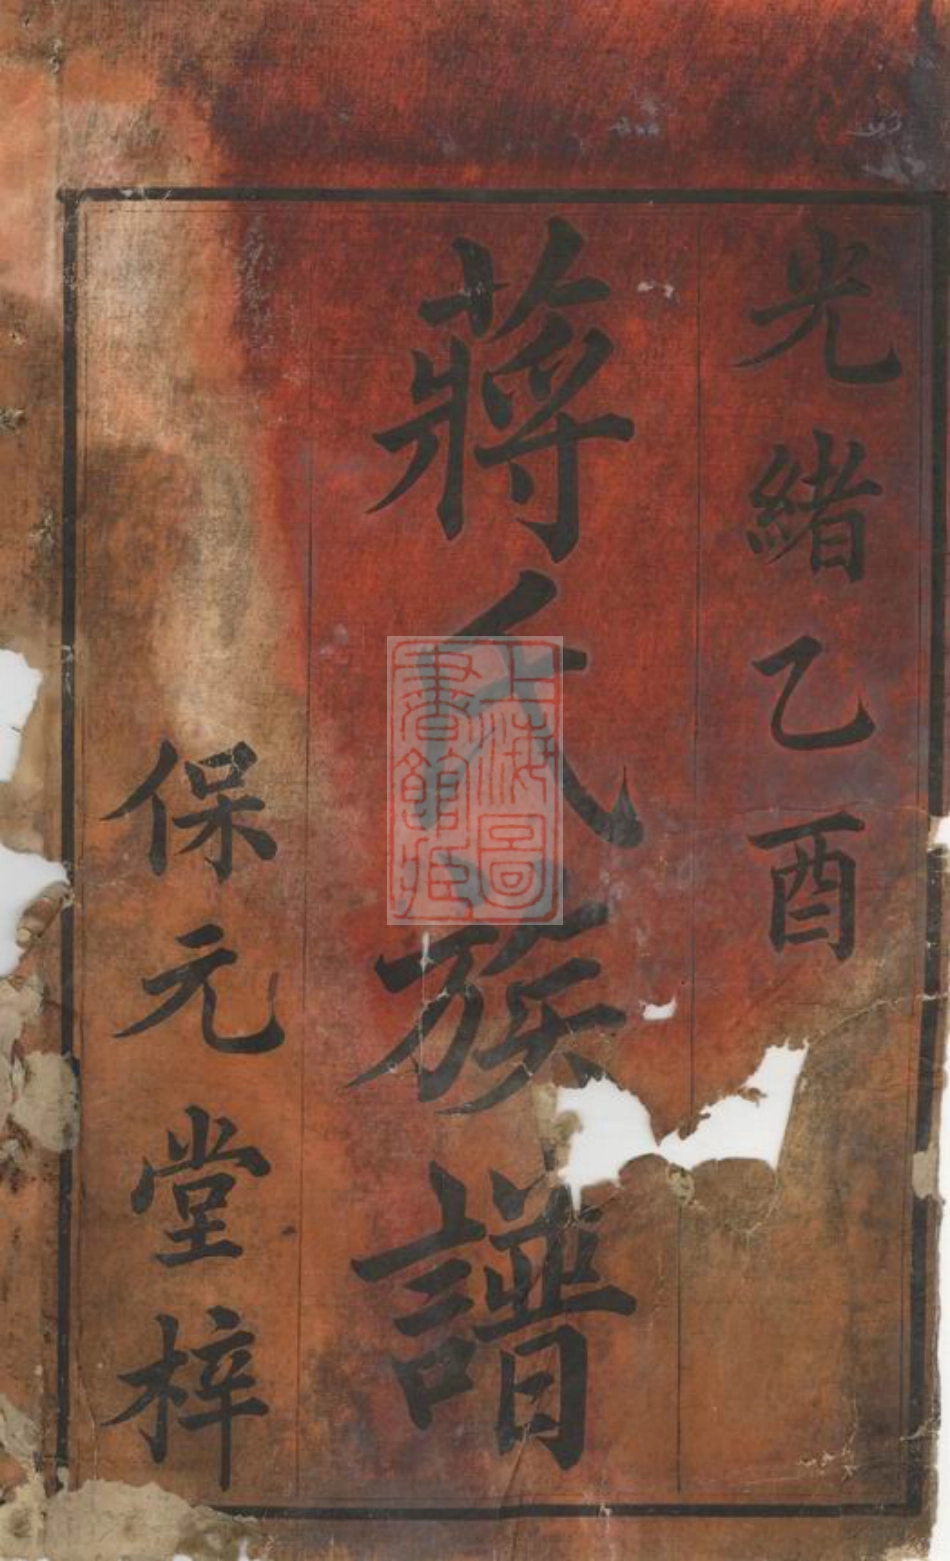 光緒乙酉
蔣氏族譜
保元堂梓
上海圖
書館藏